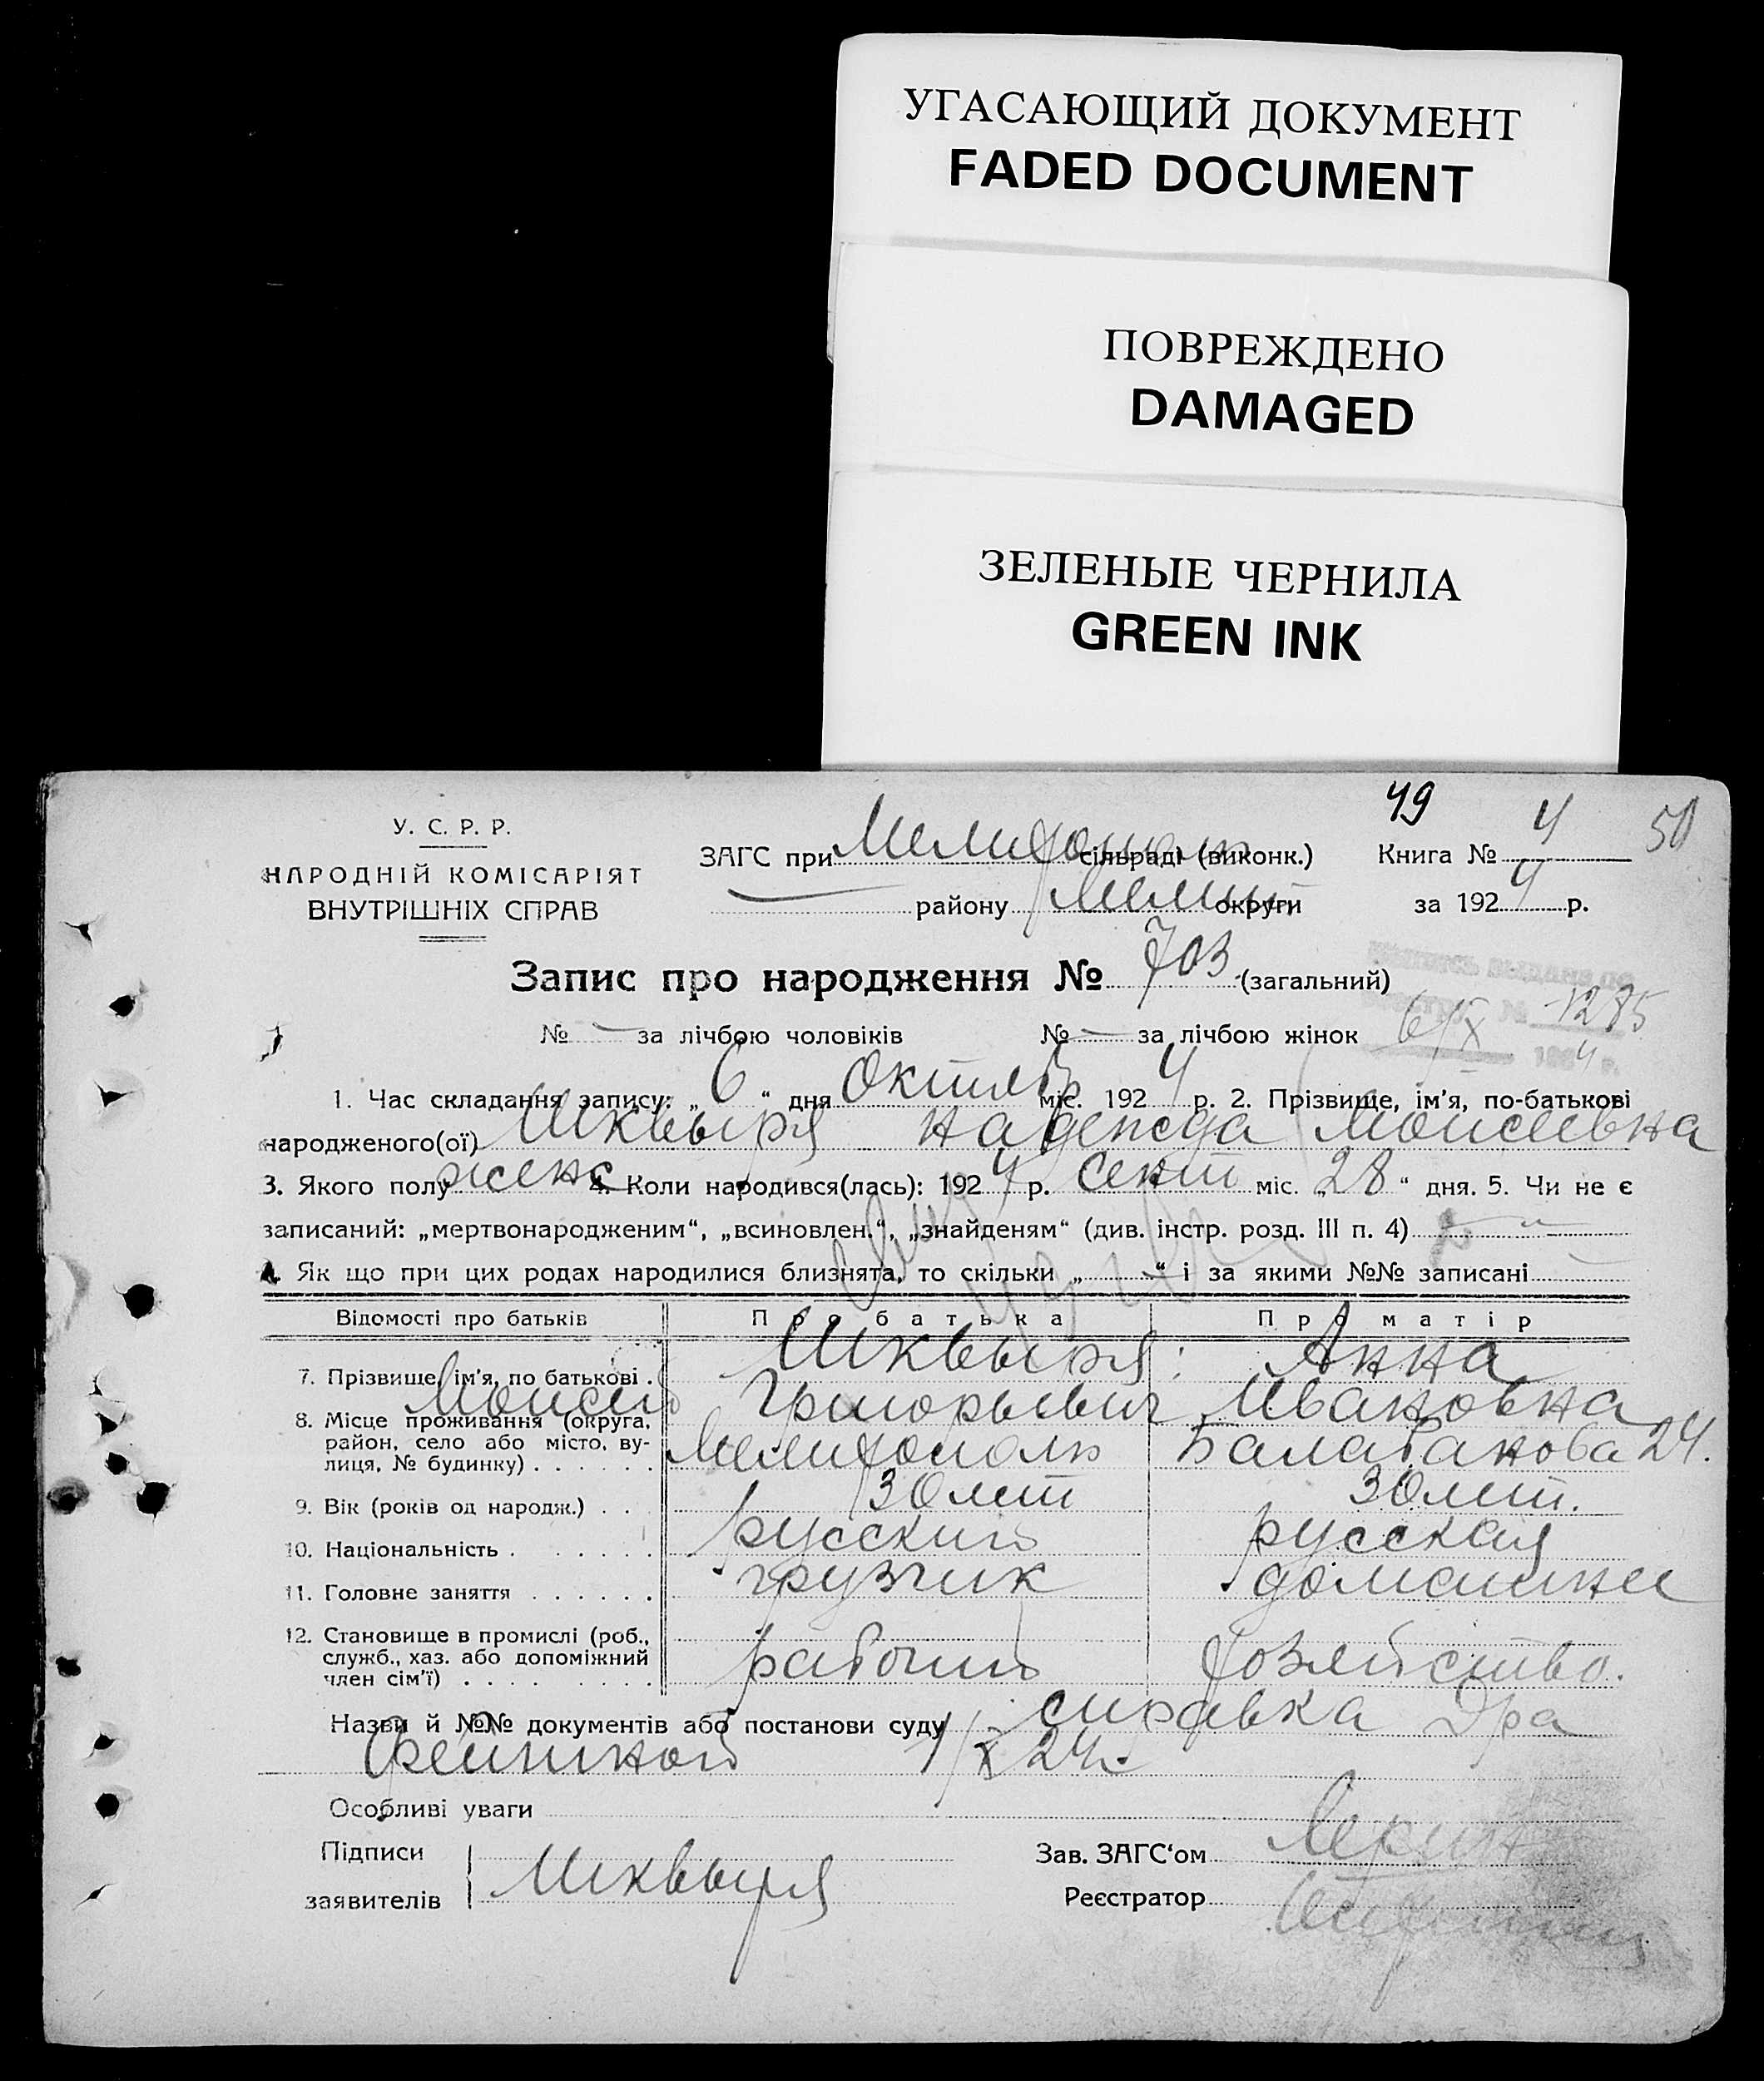 УГАСАЮЩИЙ ДОКУМЕНТ
FADED DOCUMENT
ПОВРЕЖДЕНО
DAMAGED
ЗЕЛЕНЫЕ ЧЕРНИЛА
GREEN INK
49 50
У. С. Р. Р.
НАРОДНІЙ КОМІСАРІЯТ
ВНУТРІШНІХ СПРАВ
ЗАГС при Мелитополь сільраді (виконк.) Книга № 4
— району Мелит округи за 1924 р.
Запис про народження № 703 (загальний)
№ — за лічбою чоловіків № — за лічбою жінок
6/X 1285
1. Час складання запису: „ 6 “ дня Октяб міс. 1924 р. 2. Прізвище, ім'я, по-батькові
народженого(ої) Шквыря Надежда Моисеевна
3. Якого полу женс 4. Коли народився(лась): 1924 р. Сент міс. „ 28 “ дня. 5. Чи не є
записаний: „мертвонародженим“, „всиновлен.“, „знайденям“ (див. інстр. розд. III п. 4)
Як що при цих родах народилися близнята, то скільки „ “ і за якими №№ записані
Відомості про батьків Про батька Про матір
7. Прізвище, ім'я, по батькові . Шквыря Анна
Моисей Григорьевич Ивановна
8. Місце проживання (округа, район, село або місто, вулиця, № будинку) . . . . . . Мелитополь Балабанова 24.
9. Вік (років од народж.) . . 30 лет 30 лет.
10. Національність . . . . . . русский русская
11. Головне заняття . . . . . . грузчик домашнее
12. Становище в промислі (роб., служб., хаз. або допоміжний член сім'ї) . . . . . . . . рабочий хозяйство.
Назви й №№ документів або постанови суду справка Дра
1/X 24г.
Особливі уваги
Підписи
заявителів Шквыря
Зав. ЗАГС‘ом
Реєстратор